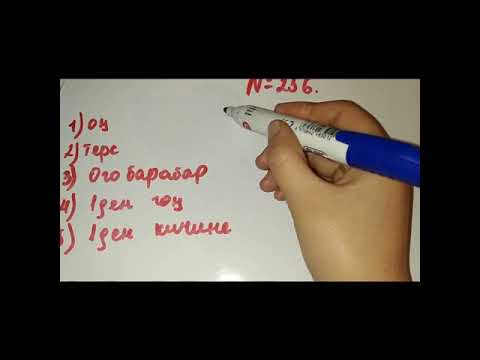 № 256.
1) оң
2) терс
3) 0го барабар
4) 1ден чоң
5) 1ден кичине